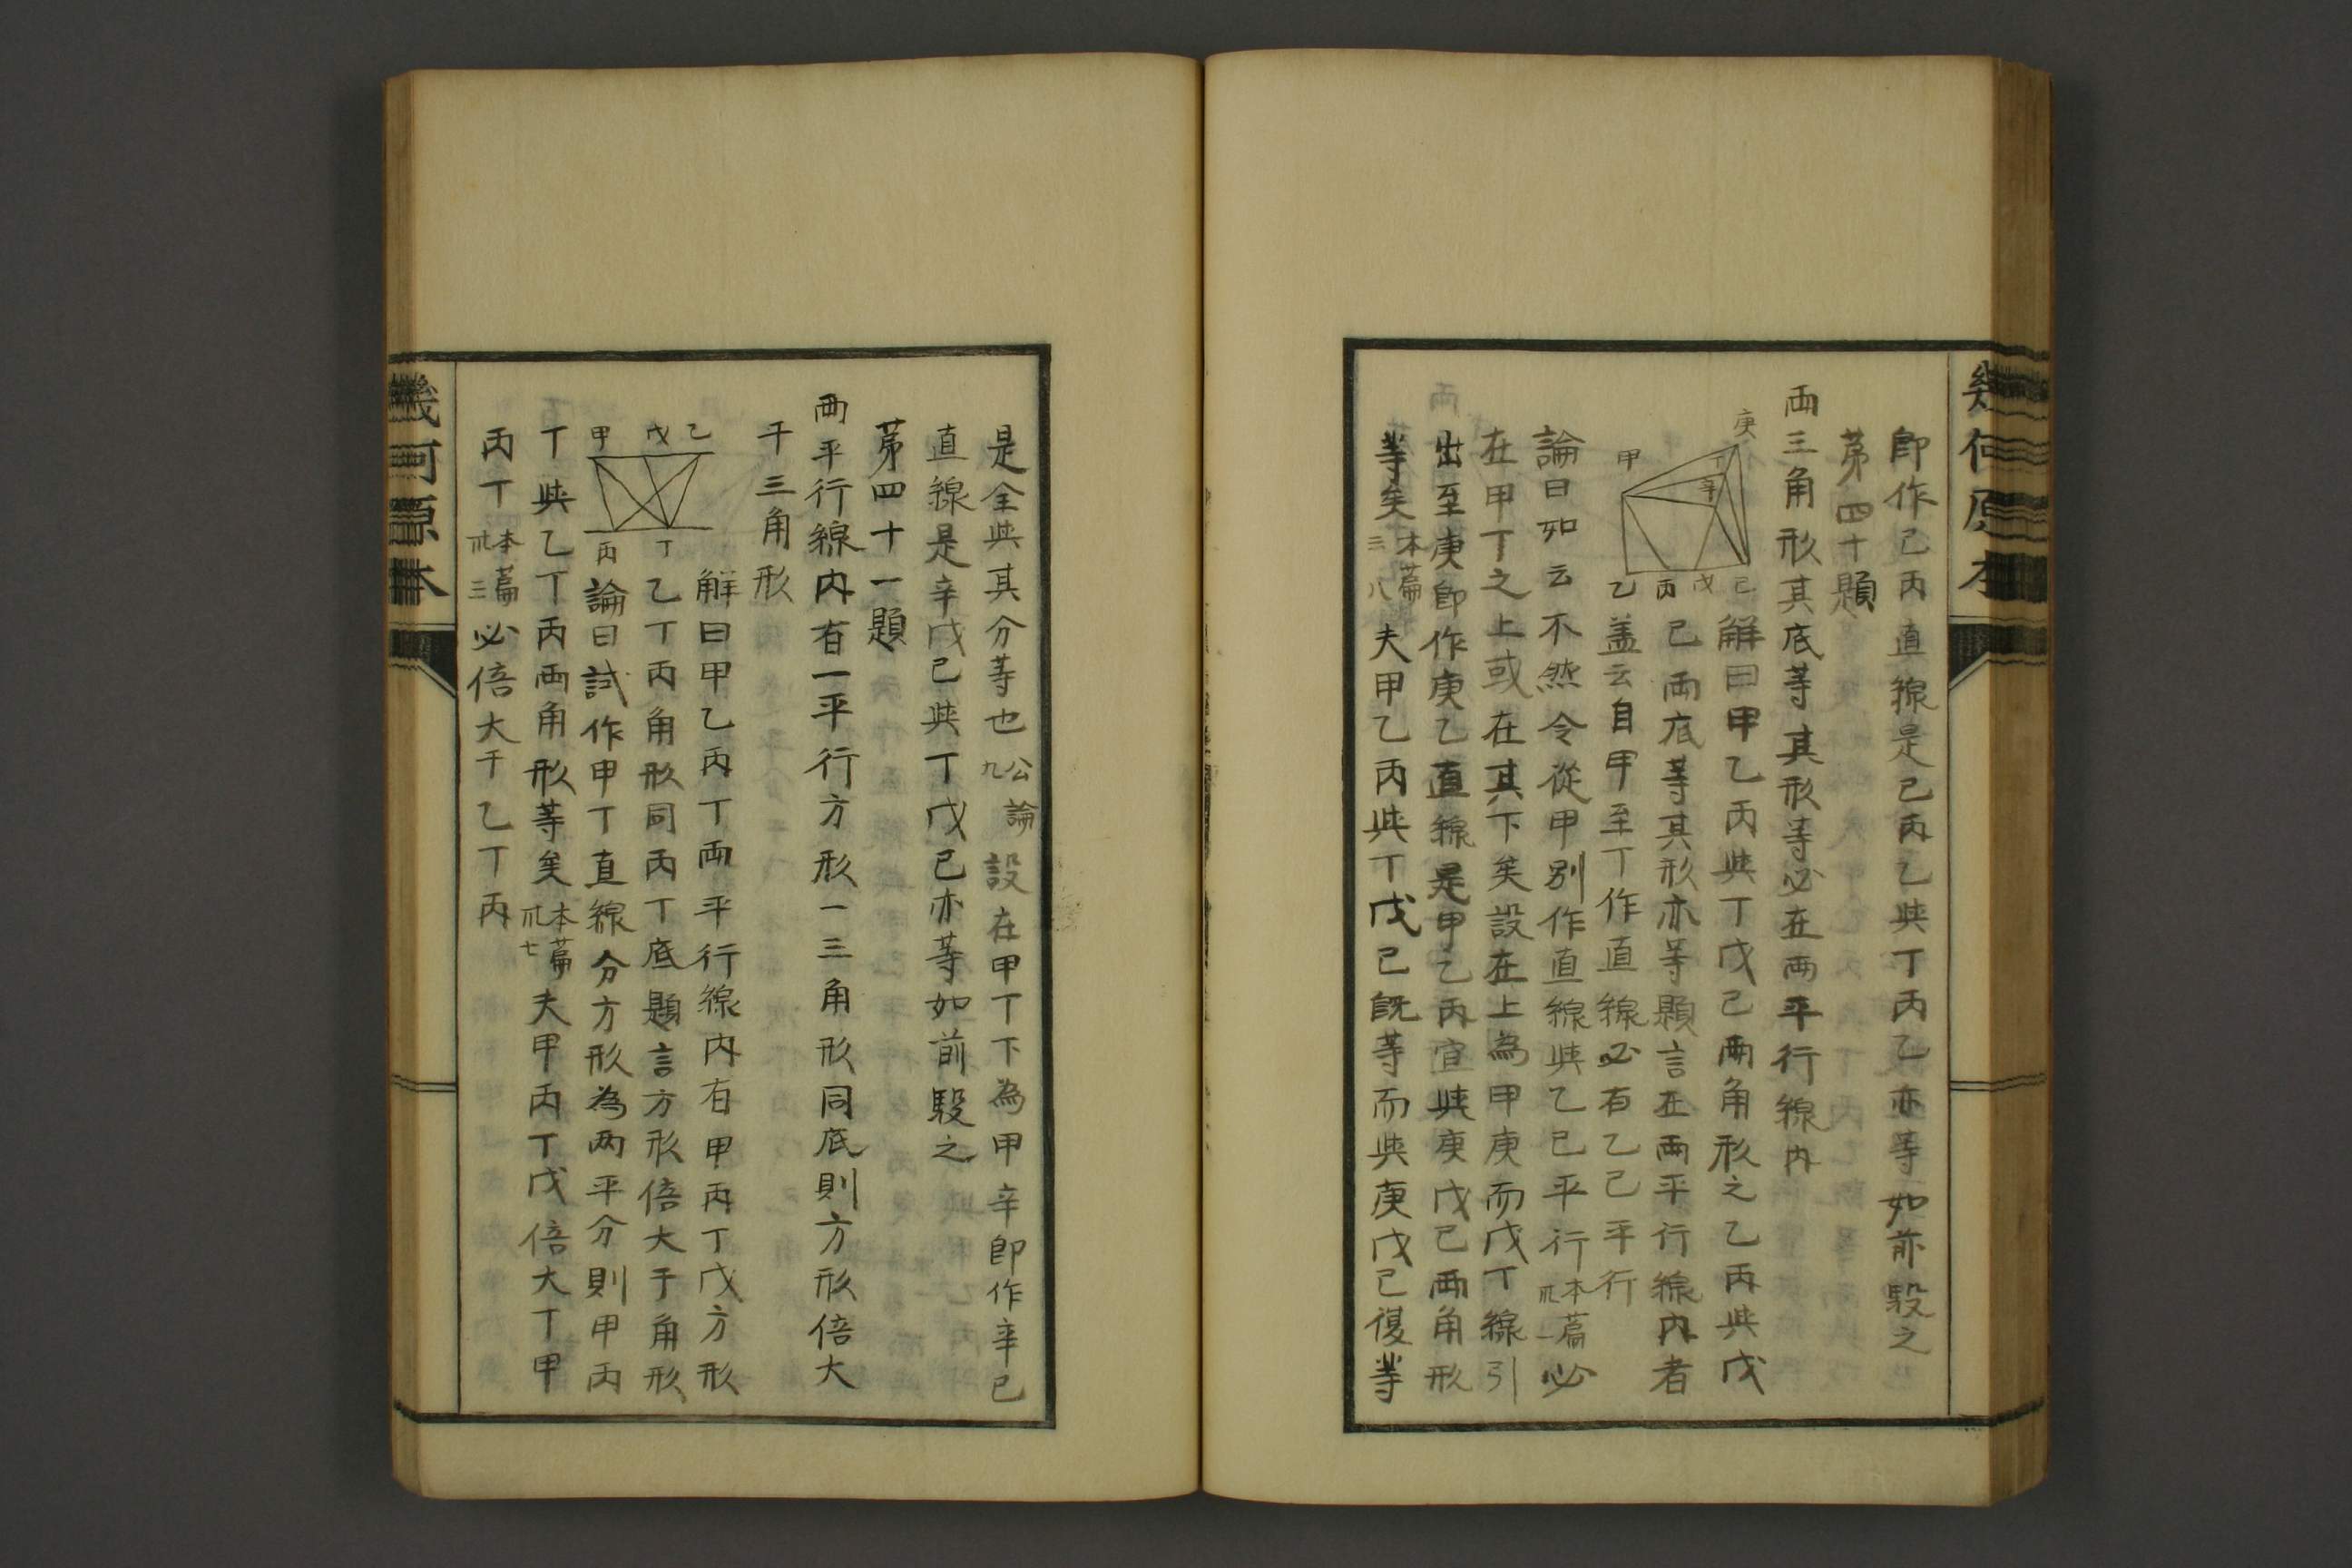 幾何原本
即作己丙直線是己丙乙與丁丙乙亦等如前駁之
第四十題
兩三角形其底等其形等必在兩平行線內
庚
甲
丁
辛
乙
丙
戊
己
解曰甲乙丙與丁戊己兩角形之乙丙與戊
己兩底等其形亦等題言在兩平行線內者
盖云自甲至丁作直線必有乙己平行
論曰如云不然令從甲別作直線與乙己平行本篇卅一必
在甲丁之上或在其下矣設在上為甲庚而戊丁線引
出至庚即作庚乙直線是甲乙丙宜與庚戊己兩角形
等矣本篇三八夫甲乙丙與丁戊己旣等而與庚戊己復等
是全與其分等也公論九設在甲丁下為甲辛即作辛己
直線是辛戊己與丁戊己亦等如前駁之
第四十一題
兩平行線內有一平行方形一三角形同底則方形倍大
于三角形
乙
戊
甲
丁
丙
解曰甲乙丙丁兩平行線內有甲丙丁戊方形
乙丁丙角形同丙丁底題言方形倍大于角形
論曰試作甲丁直線分方形為两平分則甲丙
丁與乙丁丙兩角形等矣本篇卅七夫甲丙丁戊倍大丁甲
丙丁本篇卅三必倍大于乙丁丙
幾何原本